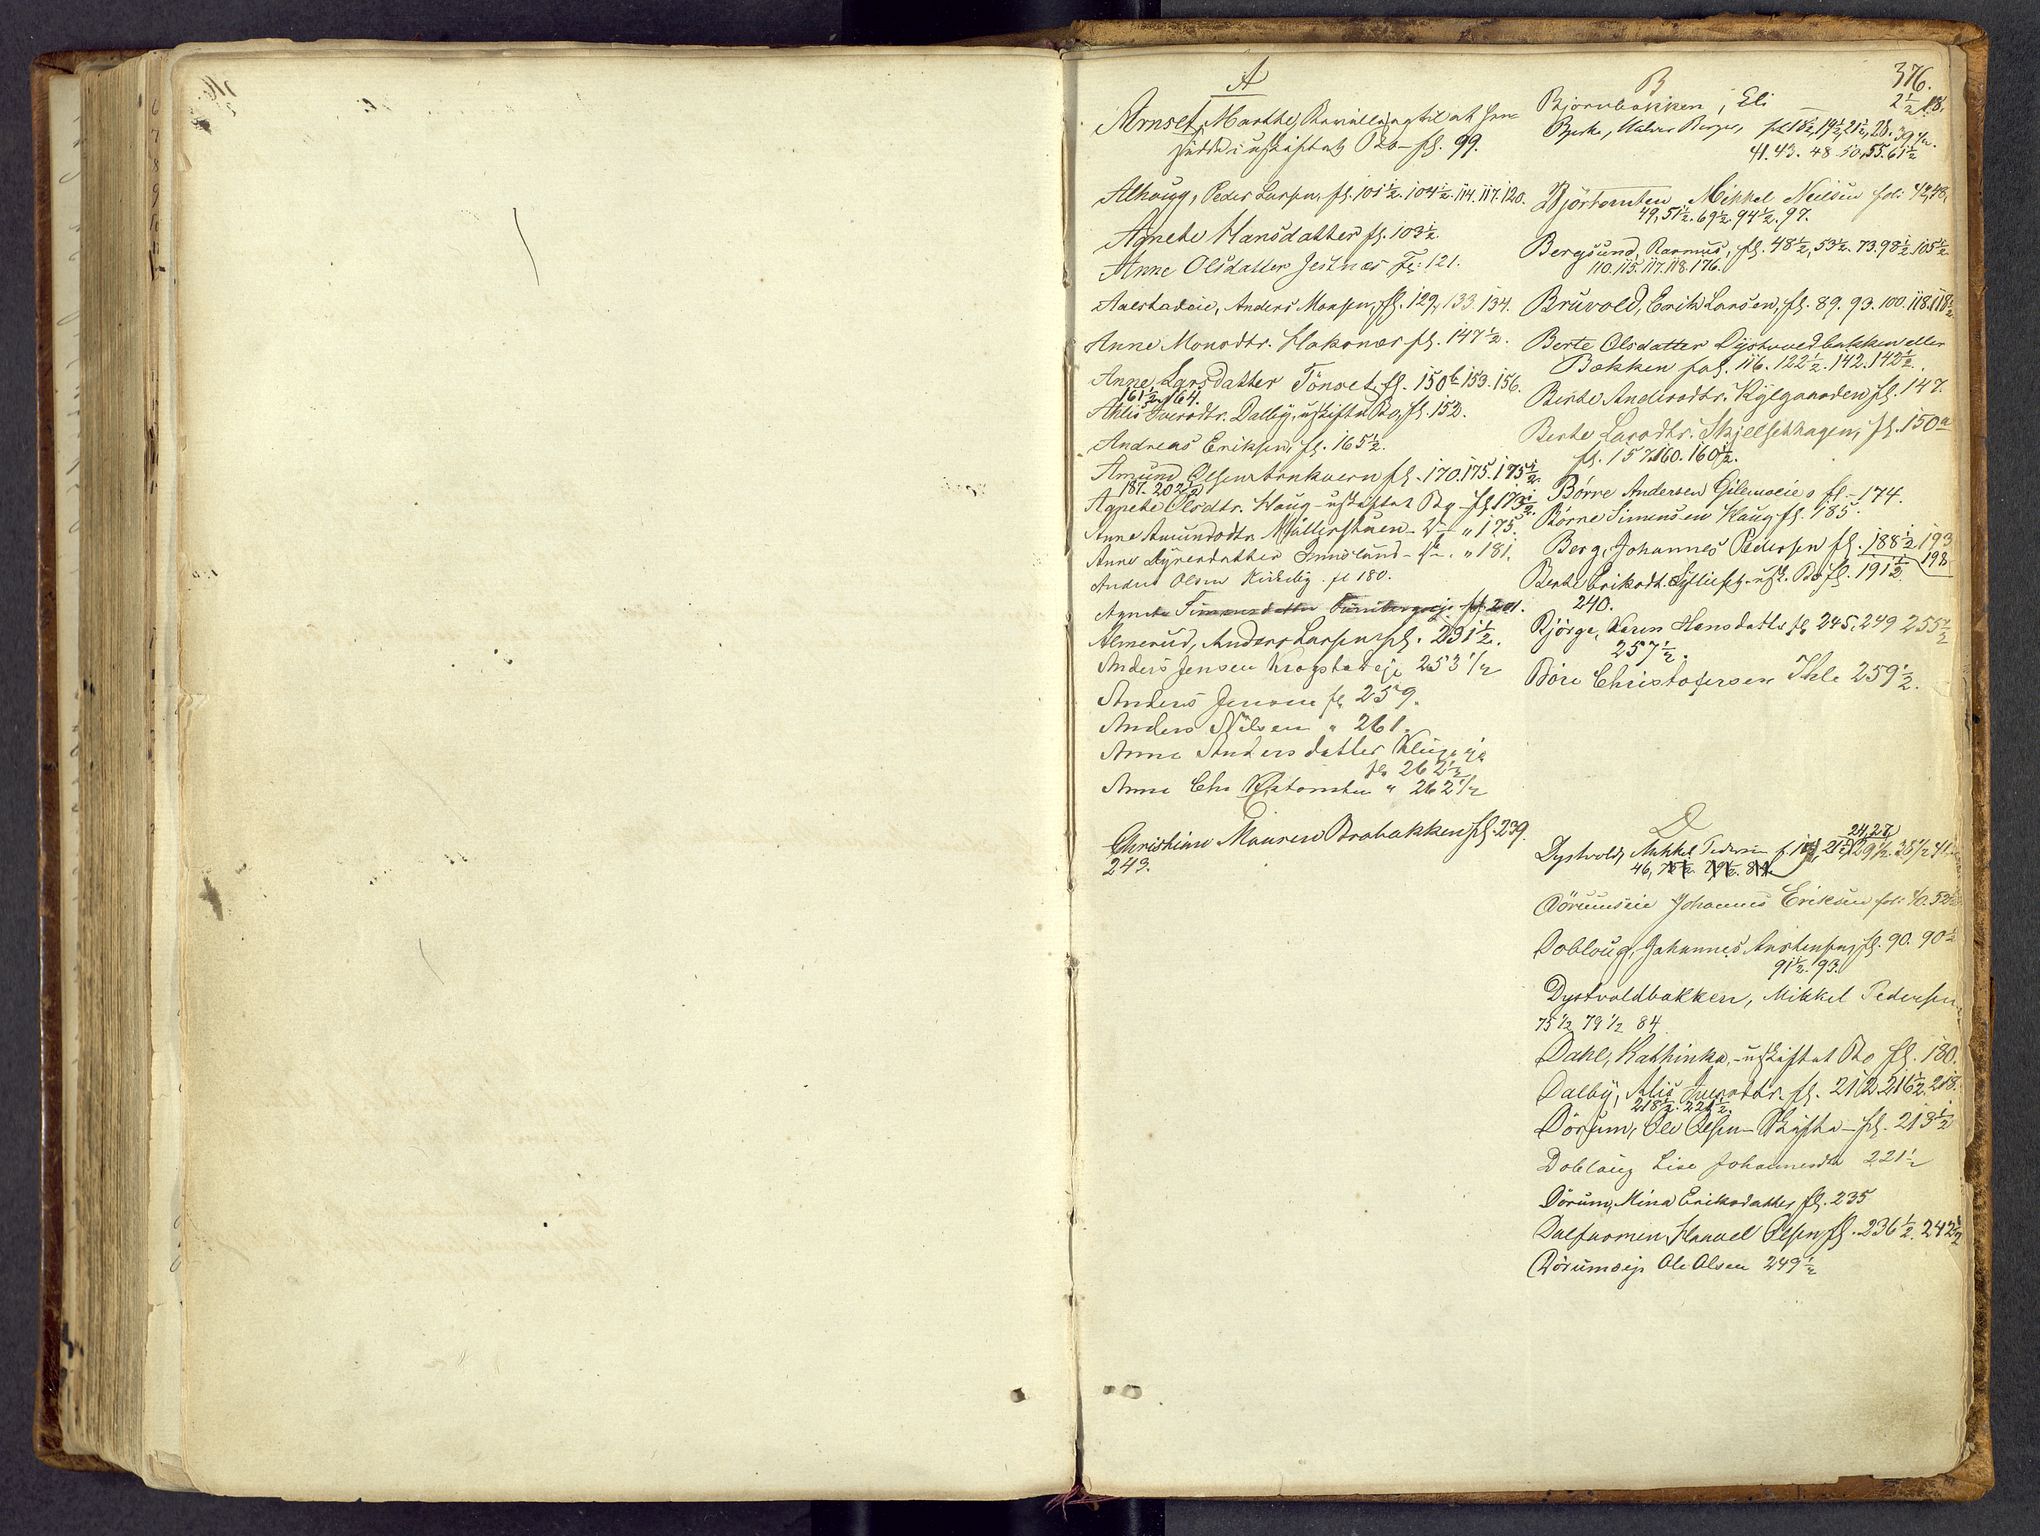 376.
A
Arnset, Marthe, Bevilling til at hen-
sidde i uskiftet Bo - fl. 99.
Alhaug, Peder Larsen, fl. 101½. 104½. 114. 117. 120.
Agnete Hansdatter fl. 103½.
Anne Olsdatter Jestnæs Fl: 121.
Aalstadeie, Anders Monsen, fl. 129, 133. 134.
Anne Monsdtr. Hakonæs fl. 147½.
Anne Larsdatter Tönset, fl. 150b 153. 156.
161½ 164.
Ahlis Iversdtr. Dalby, uskifte Bo, fl. 153.
Andreas Eriksen, fl. 165½.
Amund Olsen fl. 170. 175. 175½.
187. 202½
Agnete Olsdtr. Haug - uskiftet Bo - fl. 173½.
Anne Amundsdtr. Möllerstuen - " 175.
Anne - " 181.
Andreas Olsen Kirkeby. fl 180.
Agnete Simensdatter fl. 201.
Almerud, Anders Larsen, fl. 231½.
Anders Jensen Krogstadeje 253 1/2
Anders Jensen fl 259.
Anders Nilsen " 261.
Anne Andersdatter
fl. 262½
Anne Chr " 262 1/2
Christian Mauren Brobakken fl. 239.
243.
B
Bjørnbakken, Eli — 2½ 18.
Bjerke, Halvor Berger, fol 18½, 19½, 21½, 28. 39½.
41. 43. 48. 50. 55. 61½
Björtomten Mikkel Neilsen fol: 42, 48,
49, 51½. 69½. 94½. 97.
Bergsund, Rasmus, fl. 48½, 53½. 73. 98½. 105½.
110. 115. 117. 118. 176.
Bruvold, Erik Larsen, fl. 89. 93. 100. 118. 118½.
Berte Olsdatter Dystvoldbakken eller
Bækken fol. 116. 122½. 142. 142½.
Berte Andersdtr. Kylgaarden fl. 147.
Berte Larsdtr. Skjelsethagen, fl. 150a
fl. 157. 160. 160½.
Børre Andersen fl. - 174.
Børre Simensen Haug fl. 185.
Berg, Johannes Pedersen fl. 188½ 193
198
Berte Eriksdt. - usk. Bo fl. 191½
240.
Bjørge, Karen Hansdatter fl 245, 249 255½
257½.
Böre Christofersen Ihle 259½.
D
Dystvold, Mikkel Pedersen f. 21½, 24, 27, 29½. 38½ 41
46, 75½. 79½. 84.
Dörumseie Johannes Eriksen fol: 40. 52½
Dobloug, Johannes Austensen, fl. 90. 90½
91½. 93.
Dystvoldbakken, Mikkel Pedersen
75½ 79½ 84
Dahl, Kathinka, - uskiftet Bo fl. 180.
Dalby, Alis Iversdtr. fl. 212. 216½. 218.
218½. 221½.
Dörum, Ole Olsen - Skifte - fl. 213½
Dobloug Lise Johannesdtr 221½
Dörum, Mina Eriksdatter fl. 235
Dalfarmen, Haavel Olsen fl. 236½. 242½
Dörumseje Ole Olsen 249½